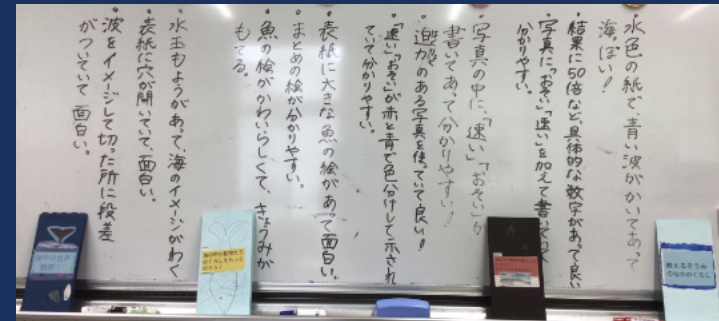 ・水色の紙で、青い波がかいてあって
海っぽい!
・結果に50倍など、具体的な数字があって良い
・写真に「おそい」「速い」を加えて書いて
分かりやすい。
・写真の中に、「速い」「おそい」が
書いてあって分かりやすい!
・迫力のある写真を使っていて良い!
・「速い」「おそい」が赤と青で色分けして示され
ていて分かりやすい。
・表紙に大きな魚の絵があって面白い。
・まとめの絵が分かりやすい。
・魚の絵がかわいらしくて、きょうみが
もてる。
・水玉もようがあって、海のイメージがわく
・表紙に穴が開いていて、面白い。
・波をイメージして切った所に段差
がついていて面白い。
海中の世界